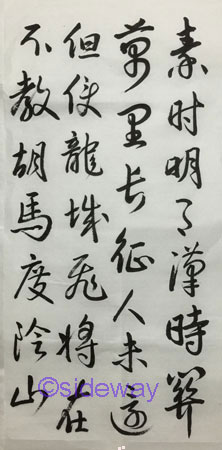 秦时明月漢時關
萬里长征人未還
但使龍城飛將在
不教胡馬度陰山
©sideway